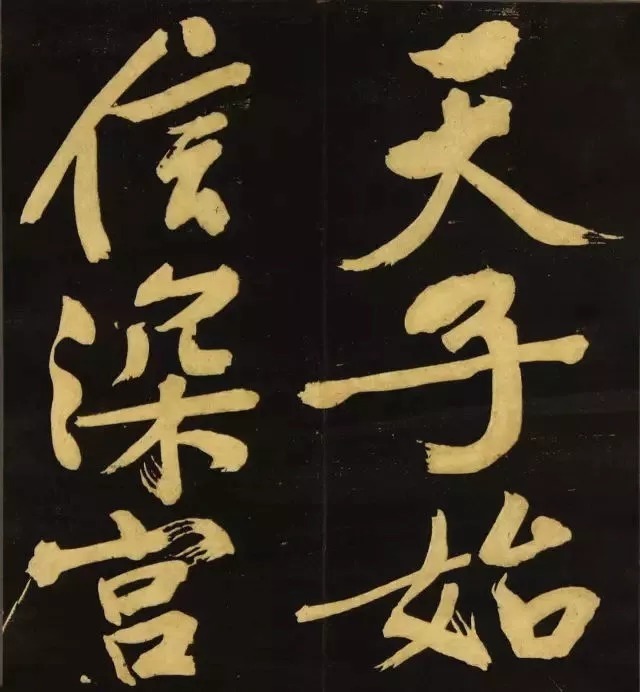 天子始
信深宫